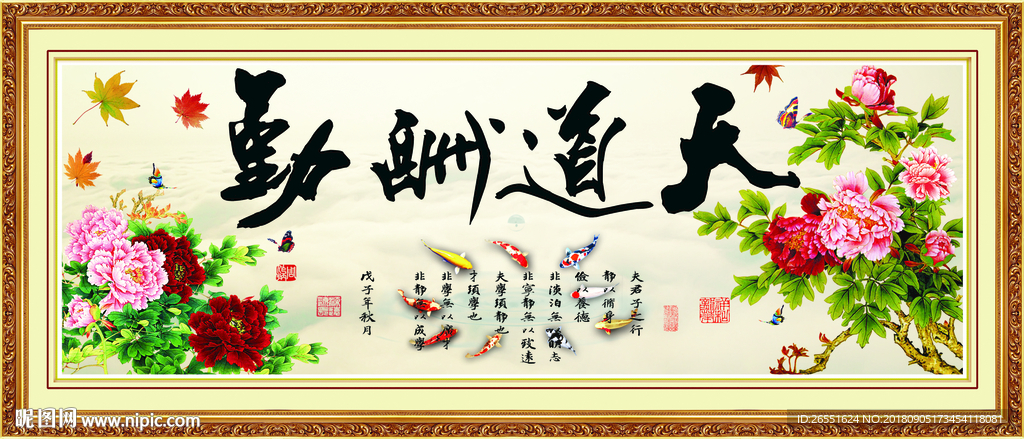 天道酬勤
夫君子之行
静以脩身
儉以養德
非淡泊無以明志
非寧静無以致遠
夫學須静也
才須學也
非學無以廣才
非静無以成學
戊子年秋月
昵图网 www.nipic.com
ID:26551624 NO:20180905173454118081